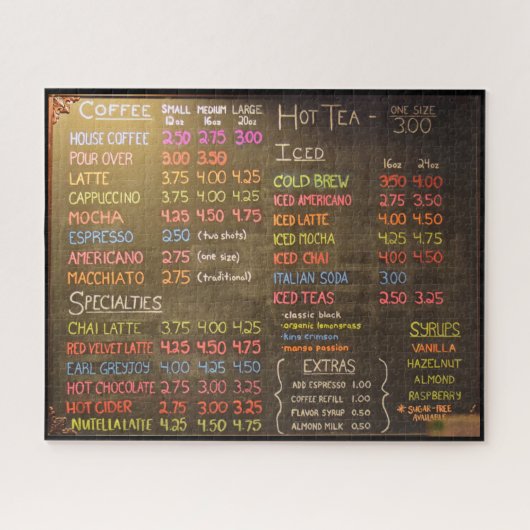 COFFEE SMALL 12oz MEDIUM 16oz LARGE 20oz
HOUSE COFFEE 2.50 2.75 3.00
POUR OVER 3.00 3.50
LATTE 3.75 4.00 4.25
CAPPUCCINO 3.75 4.00 4.25
MOCHA 4.25 4.50 4.75
ESPRESSO 2.50 (two shots)
AMERICANO 2.75 (one size)
MACCHIATO 2.75 (traditional)
SPECIALTIES
CHAI LATTE 3.75 4.00 4.25
RED VELVET LATTE 4.25 4.50 4.75
EARL GREYJOY 4.00 4.25 4.50
HOT CHOCOLATE 2.75 3.00 3.25
HOT CIDER 2.75 3.00 3.25
NUTELLA LATTE 4.25 4.50 4.75
HOT TEA - ONE SIZE 3.00
ICED 16oz 24oz
COLD BREW 3.50 4.00
ICED AMERICANO 2.75 3.50
ICED LATTE 4.00 4.50
ICED MOCHA 4.25 4.75
ICED CHAI 4.00 4.50
ITALIAN SODA 3.00
ICED TEAS 2.50 3.25
• classic black
• organic lemongrass
• king crimson
• mango passion
EXTRAS
ADD ESPRESSO 1.00
COFFEE REFILL 1.00
FLAVOR SYRUP 0.50
ALMOND MILK 0.50
SYRUPS
VANILLA
HAZELNUT
ALMOND
RASPBERRY
* SUGAR-FREE
AVAILABLE